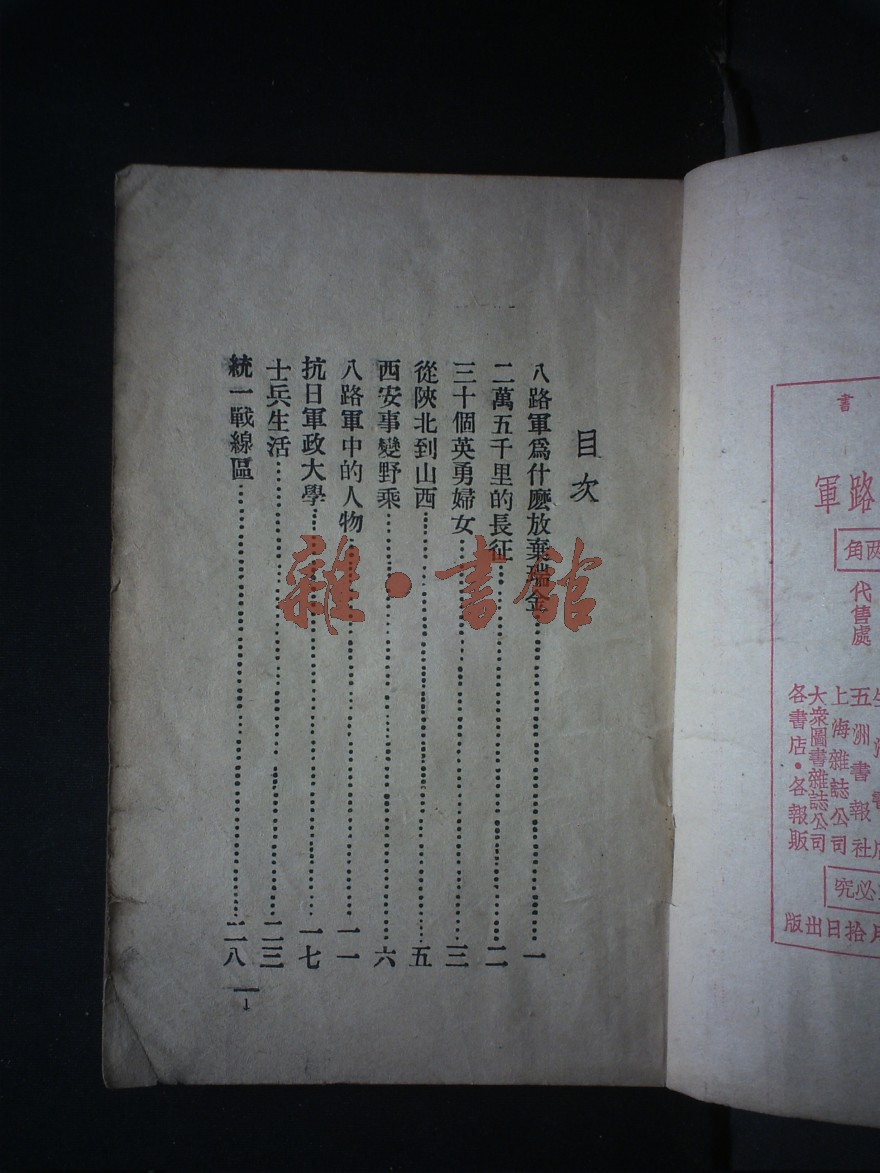 目次
八路軍爲什麽放棄瑞金……一
二萬五千里的長征……二
三十個英勇婦女……三
從陝北到山西……五
西安事變野乘……六
八路軍中的人物……一一
抗日軍政大學……一七
士兵生活……二三
統一戰線區……二八
1
雜·書舘
書
路軍
兩角
代售處
五洲書報社
上海雜誌公司
大衆圖書雜誌公司
各書店·各報販
必究
月拾日出版